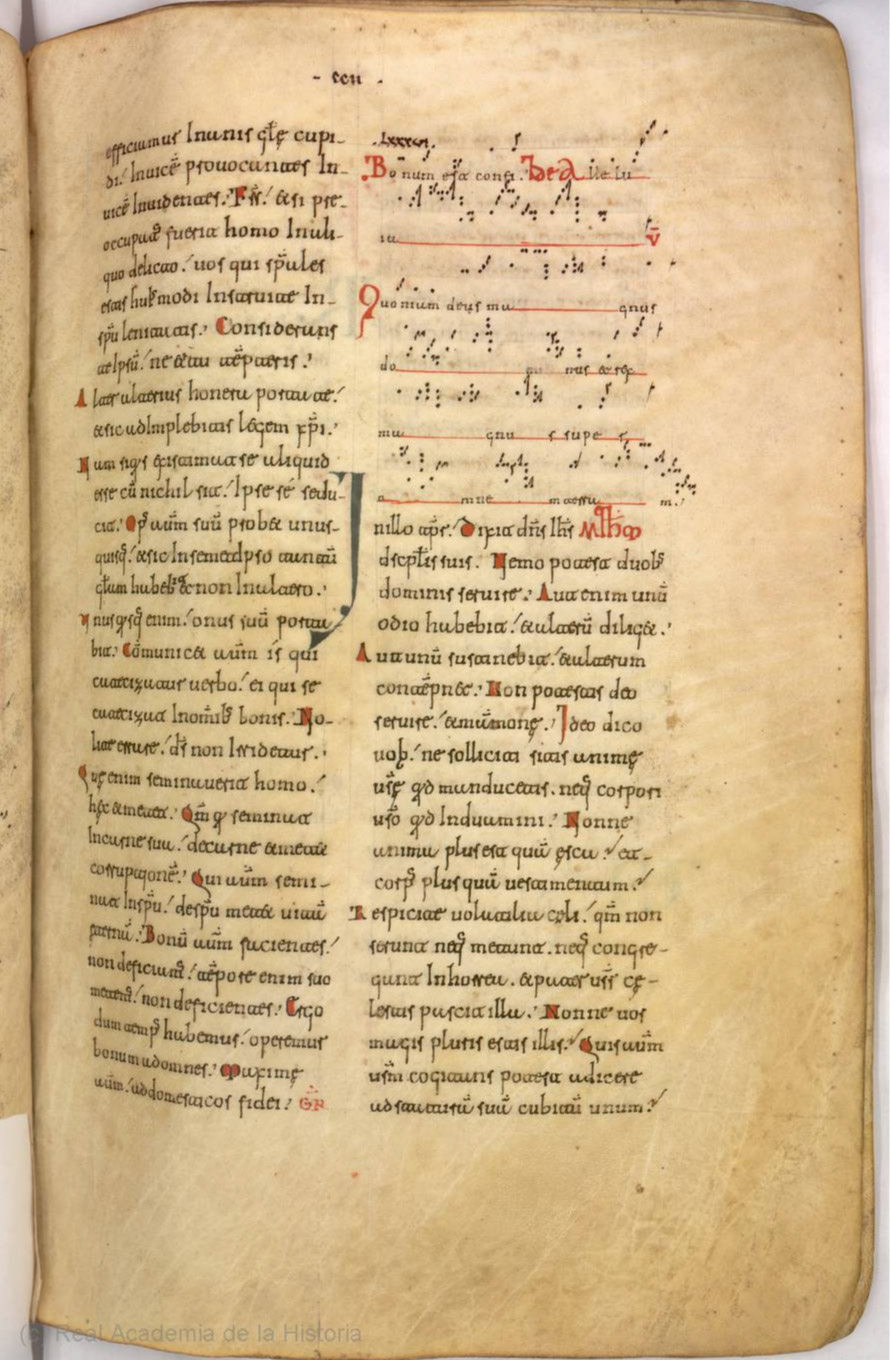 - xcii -
efficiamur Inanis gl̄ę cupi-
di. Inuicē prouocantes In-
uicē Inuidentes. Fr̄s. & si pre-
occupat᷒ fuerit homo In ali-
quo delicto. uos qui sp̄ales
estis hui᷒modi Instruite In
sp̄u lenitatis. Considerans
te Ipsū. ne & tu tēpteris.
Alter alterius honera portate.
& sic adImplebitis legem xp̄i.
Nam siq̄s existimat se aliquid
esse cū nichil sit. Ipse se sedu-
cit. Op᷒ aūm suū probet unus-
quisq. & sic In semetipso tantū
gl̄am habeb̄ & non In altero.
Vnusq̄sq enim. onus suū porta-
bit. Cōmunicet aūm is qui
catecizatur uerbo. ei qui se
catecizat In omīb᷒ bonis. No-
lite errare. d̄s non Irridetur.
Quę enim seminauerit homo.
hęc & metet. Qm̄ qi seminat
In carne sua. de carne & metet
corruptionē. Qui aūm semi-
nat In sp̄u. de sp̄u metet uitā
ęternā. Bonū aūm facientes.
non deficiam᷒. tēpore enim suo
metem᷒. non deficientes. Ergo
dum temp᷒ habemus. operemur
bonum ad omnes. Maxime
aūm. ad domesticos fidei. GR̄
lxxxxi.
Bonum est confi. Alle lu
ia V̄
Quoniam deus ma gnus
do mi nus & rex
ma gnu s supe r
o mne m terra m.
In illo tp̄r. Dixit dn̄s Ih̄s
discipl̄is suis. Nemo potest duob᷒
dominis seruire. Aut enim unū
odio habebit. & alterū diliget.
Aut unū sustinebit. & alterum
contēpnet. Non potestis deo
seruire. & mammonę. Ideo dico
uob̄. ne solliciti sitis animę
ur̄ę qd manducetis. neq corpori
ur̄o qd Induamini. Nonne
anima plus est quā ęsca. & -
corp᷒ plus quā uestimentum.
Respicite uolatilia cęli. qm̄ non
serunt neq metunt. neq congre-
gant In horrea. & pater ur̄ cę-
lestis pascit illa. Nonne uos
magis pluris estis illis. Quis aūm
ur̄m cogitans potest adicere
ad staturā suā cubitū unum.
(c) Real Academia de la Historia